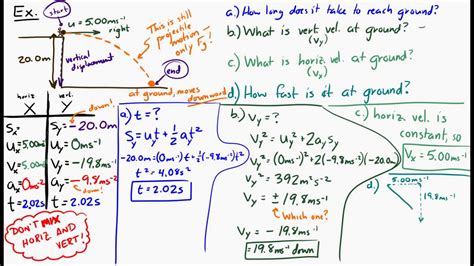 Ex.
start
u = 5.00ms⁻¹
right
20.0m
vertical displacement
This is still projectile motion only Fg!
end
at ground, moves downward
a.) How long does it take to reach ground?
b.) What is vert vel. at ground?
(Vy)
c.) What is horiz vel. at ground?
(Vx)
d.) How fast is it at ground?
horiz vert.
X Y
down!
Sx= Sy=-20.0m
ux=5.00ms⁻¹ uy=0ms⁻¹
Vx=5.00ms⁻¹ Vy=-19.8ms⁻¹
down!
ax=0ms⁻² ay=-9.8ms⁻²
t=2.02s t=2.02s
DON'T MIX HORIZ AND VERT!
a) t = ?
Sy=uyt+½at²
-20.0m=(0ms⁻¹)t+½(-9.8ms⁻²)t²
t²=4.08s²
t = 2.02s
b.) Vy = ?
Vy² = uy²+2aySy
Vy²=(0ms⁻¹)²+2(-9.8ms⁻²)(-20.0m)
Vy² = 392m²s⁻²
Vy = ± 19.8ms⁻¹
Which one?
Vy = -19.8ms⁻¹
=19.8ms⁻¹ down
c.) horiz vel. is constant, so
Vx = 5.00ms⁻¹
d.)
5.00ms⁻¹
19.8ms⁻¹